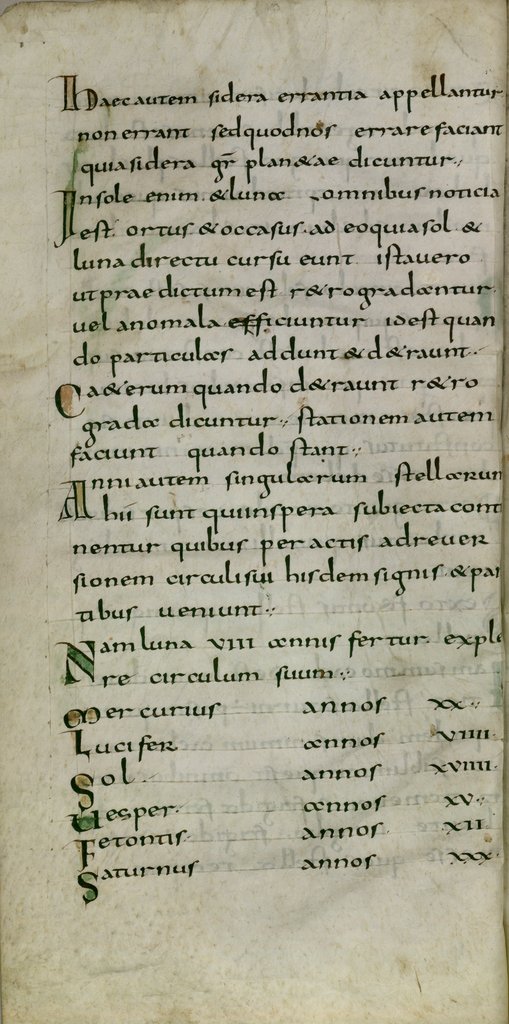 Haec autem sidera errantia appellantur
non errant sed quod nos errare faciant
quia sidera gr̄ planetae dicuntur.,
In sole enim & lunae omnibus noticia
est ortus & occasus. ad eo quia sol &
luna directu cursu eunt ista vero
ut prae dictum est r&rogradantur
vel anomala efficiuntur id est quan
do particulas addunt & d&raunt.
Ca&erum quando d&raunt r&ro
gradae dicuntur., stationem autem
faciunt quando stant.,
Anni autem singularum stellarum
hii sunt qui inspera subiecta cont
nentur quibus per actis ad rever
sionem circuli sui hisdem signis & par
tibus veniunt.,
Nam luna VIII annis fertur exple
re circulum suum.,
Mercurius annos XX.,
Lucifer annos VIIII
Sol. annos XVIIII
Uesper. annos XV.,
Fetontis annos XII
Saturnus annos XXX.